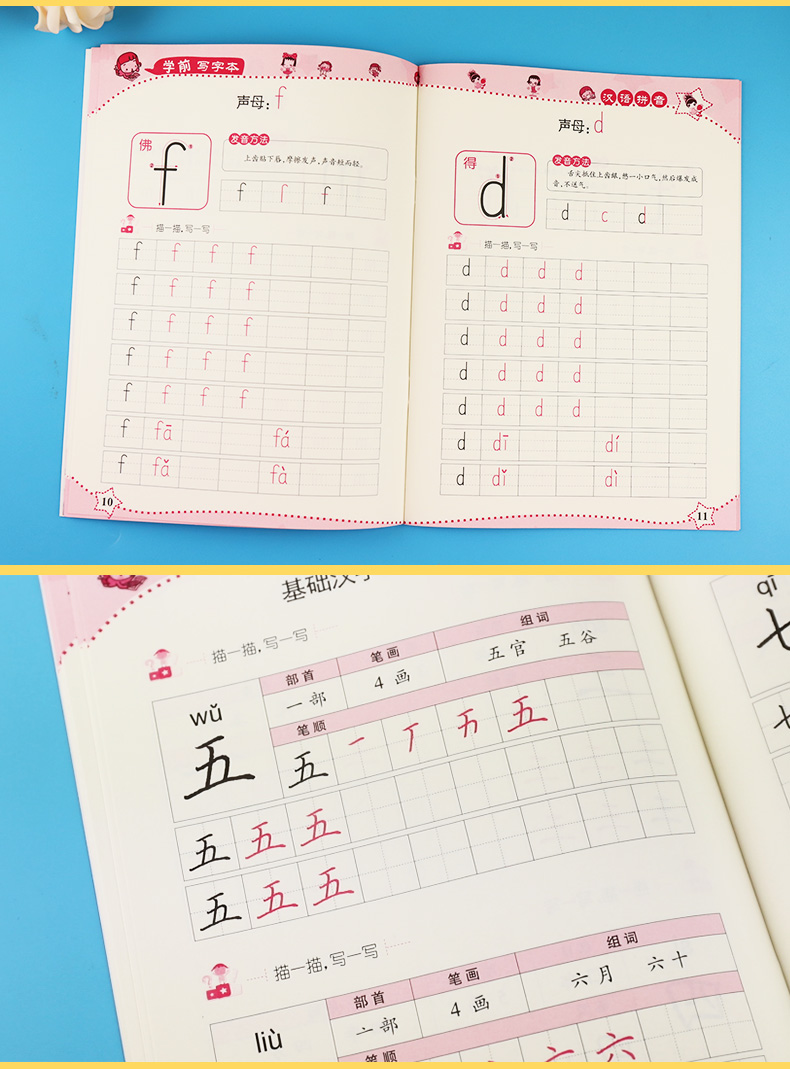 学前 写字本
声母: f
佛
f
发音方法
上齿贴下唇,摩擦发声,声音轻而短。
f f f
描一描,写一写
f f f f
f f f f
f f f f
f f f f
f f f f
f fā fá
f fǎ fà
10
汉语拼音
声母: d
得
d
发音方法
舌尖抵住上齿龈,憋一小口气,然后爆发成
音,不送气。
d c d
描一描,写一写
d d d d
d d d d
d d d d
d d d d
d d d d
d dī dí
d dǐ dì
11
基础汉字
描一描,写一写
wǔ
五
部首 笔画 组词
一部 4 画 五官 五谷
笔顺
五 一 丅 五
五 五 五
五 五 五
描一描,写一写
liù
部首 笔画 组词
亠部 4 画 六月 六十
笔顺
六 六
qī
七